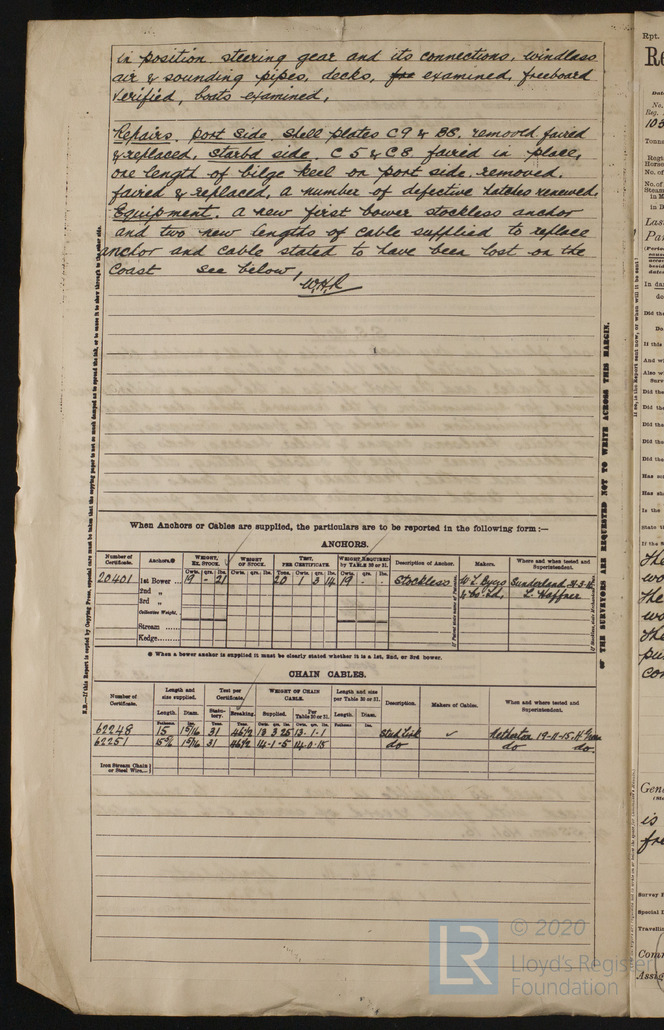 in position, steering gear and its connections, windlass
air & sounding pipes, decks, examined, freeboard
verified, boats examined,
Repairs. Port Side. Shell plates C9 & B8. removed faired
& replaced, Starbd side. C5 & C8 faired in place,
one length of bilge keel on port side. removed.
faired & replaced, a number of defective hatches renewed.
Equipment. a new first bower stockless anchor
and two new lengths of cable supplied to replace
anchor and cable stated to have been lost on the
Coast see below,
W.H.R
When Anchors or Cables are supplied, the particulars are to be reported in the following form :—
ANCHORS.
Number of Certificate. Anchors.* WEIGHT, EX. STOCK. WEIGHT OF STOCK. TEST, PER CERTIFICATE. WEIGHT REQUIRED by TABLE 30 or 31. Description of Anchor. Makers. Where and when tested and Superintendent.
Cwts. qrs. lbs. Cwts. qrs. lbs. Tons. Cwts. qrs. lbs. Cwts. qrs. lbs.
20401 1st Bower ... 19 - 21 20 1 3 14 19 - - Stockless W. L. Byers Sunderland
2nd „ & Co. Ld, L. Haffner
3rd „
Collective Weight.
Stream
Kedge
* When a bower anchor is supplied it must be clearly stated whether it is a 1st, 2nd, or 3rd bower.
CHAIN CABLES.
Number of Certificate. Length and size supplied. Test per Certificate. WEIGHT OF CHAIN CABLE. Length and size per Table 30 or 31. Description. Makers of Cables. When and where tested and Superintendent.
Length. Diam. Statutory. Breaking. Supplied. Per Table 30 or 31. Length. Diam.
Fathoms. Ins. Tons. Tons. Cwts. qrs. lbs. Cwts. qrs. lbs. Fathoms. Ins.
62248 15 1 5/16 31 46 1/2 13 3 25 13 - 1 - 1 Stud Link ✓ Netherton 19-11-15
62251 1 5/16 31 46 1/2 14-1-5 14-0-15 do do do.
Iron Stream Chain or Steel Wire
N.B.—If this Report is copied by Copying Press, especial care must be taken that the copying paper is not so much damped as to spread the ink, or to cause it to show through to the other side.
OF THE SURVEYORS ARE REQUESTED NOT TO WRITE ACROSS THIS MARGIN.
Rpt.
© 2020
LR
Lloyd's Register
Foundation